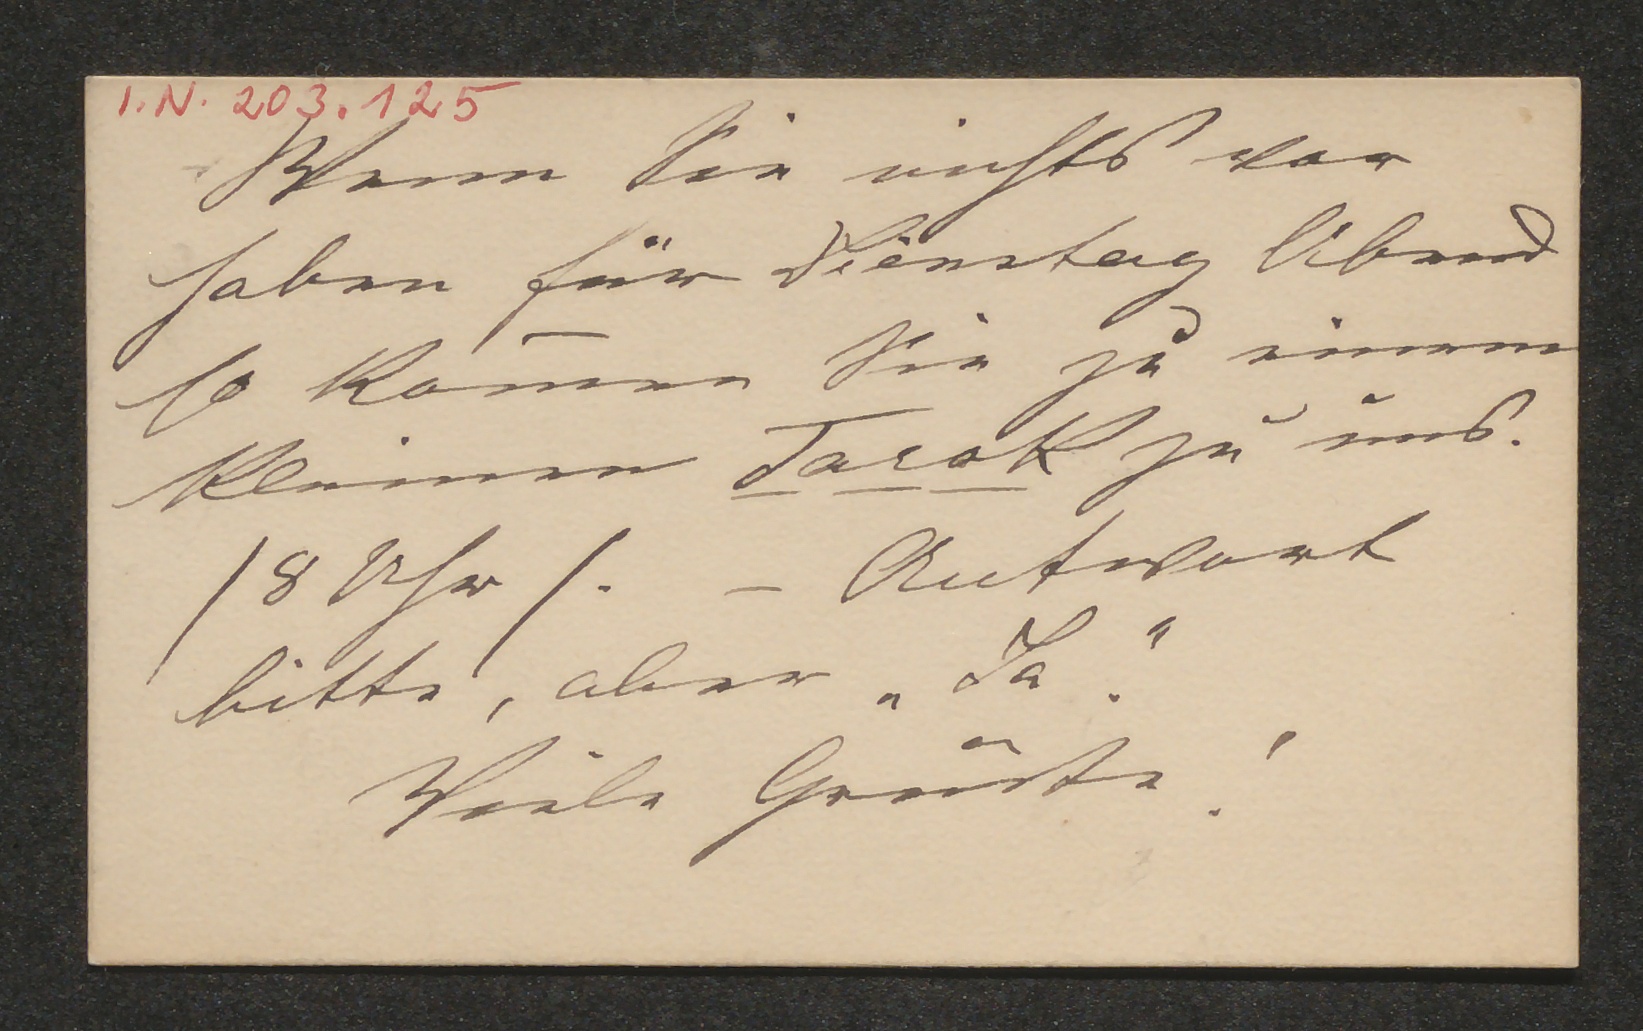 I.N. 203.125
Wenn Sie nichts vor
haben für Dienstag Abend
so kom̄en Sie zu einem
kleinen Tarok zu uns.
/ 8 Uhr /. – Antwort
bitte, aber „Ja."
Viele Grüße!